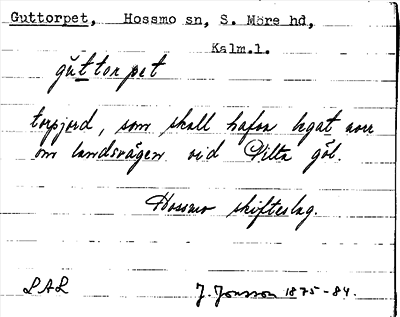 Guttorpet, Hossmo sn, S. Möre hd,
Kalm.l.
guttorpet
torpjord, som skall hafva legat norr
om landsvägen vid Vilta göl.
Hossmo skifteslag.
LAL J. Jonsson 1875-84.